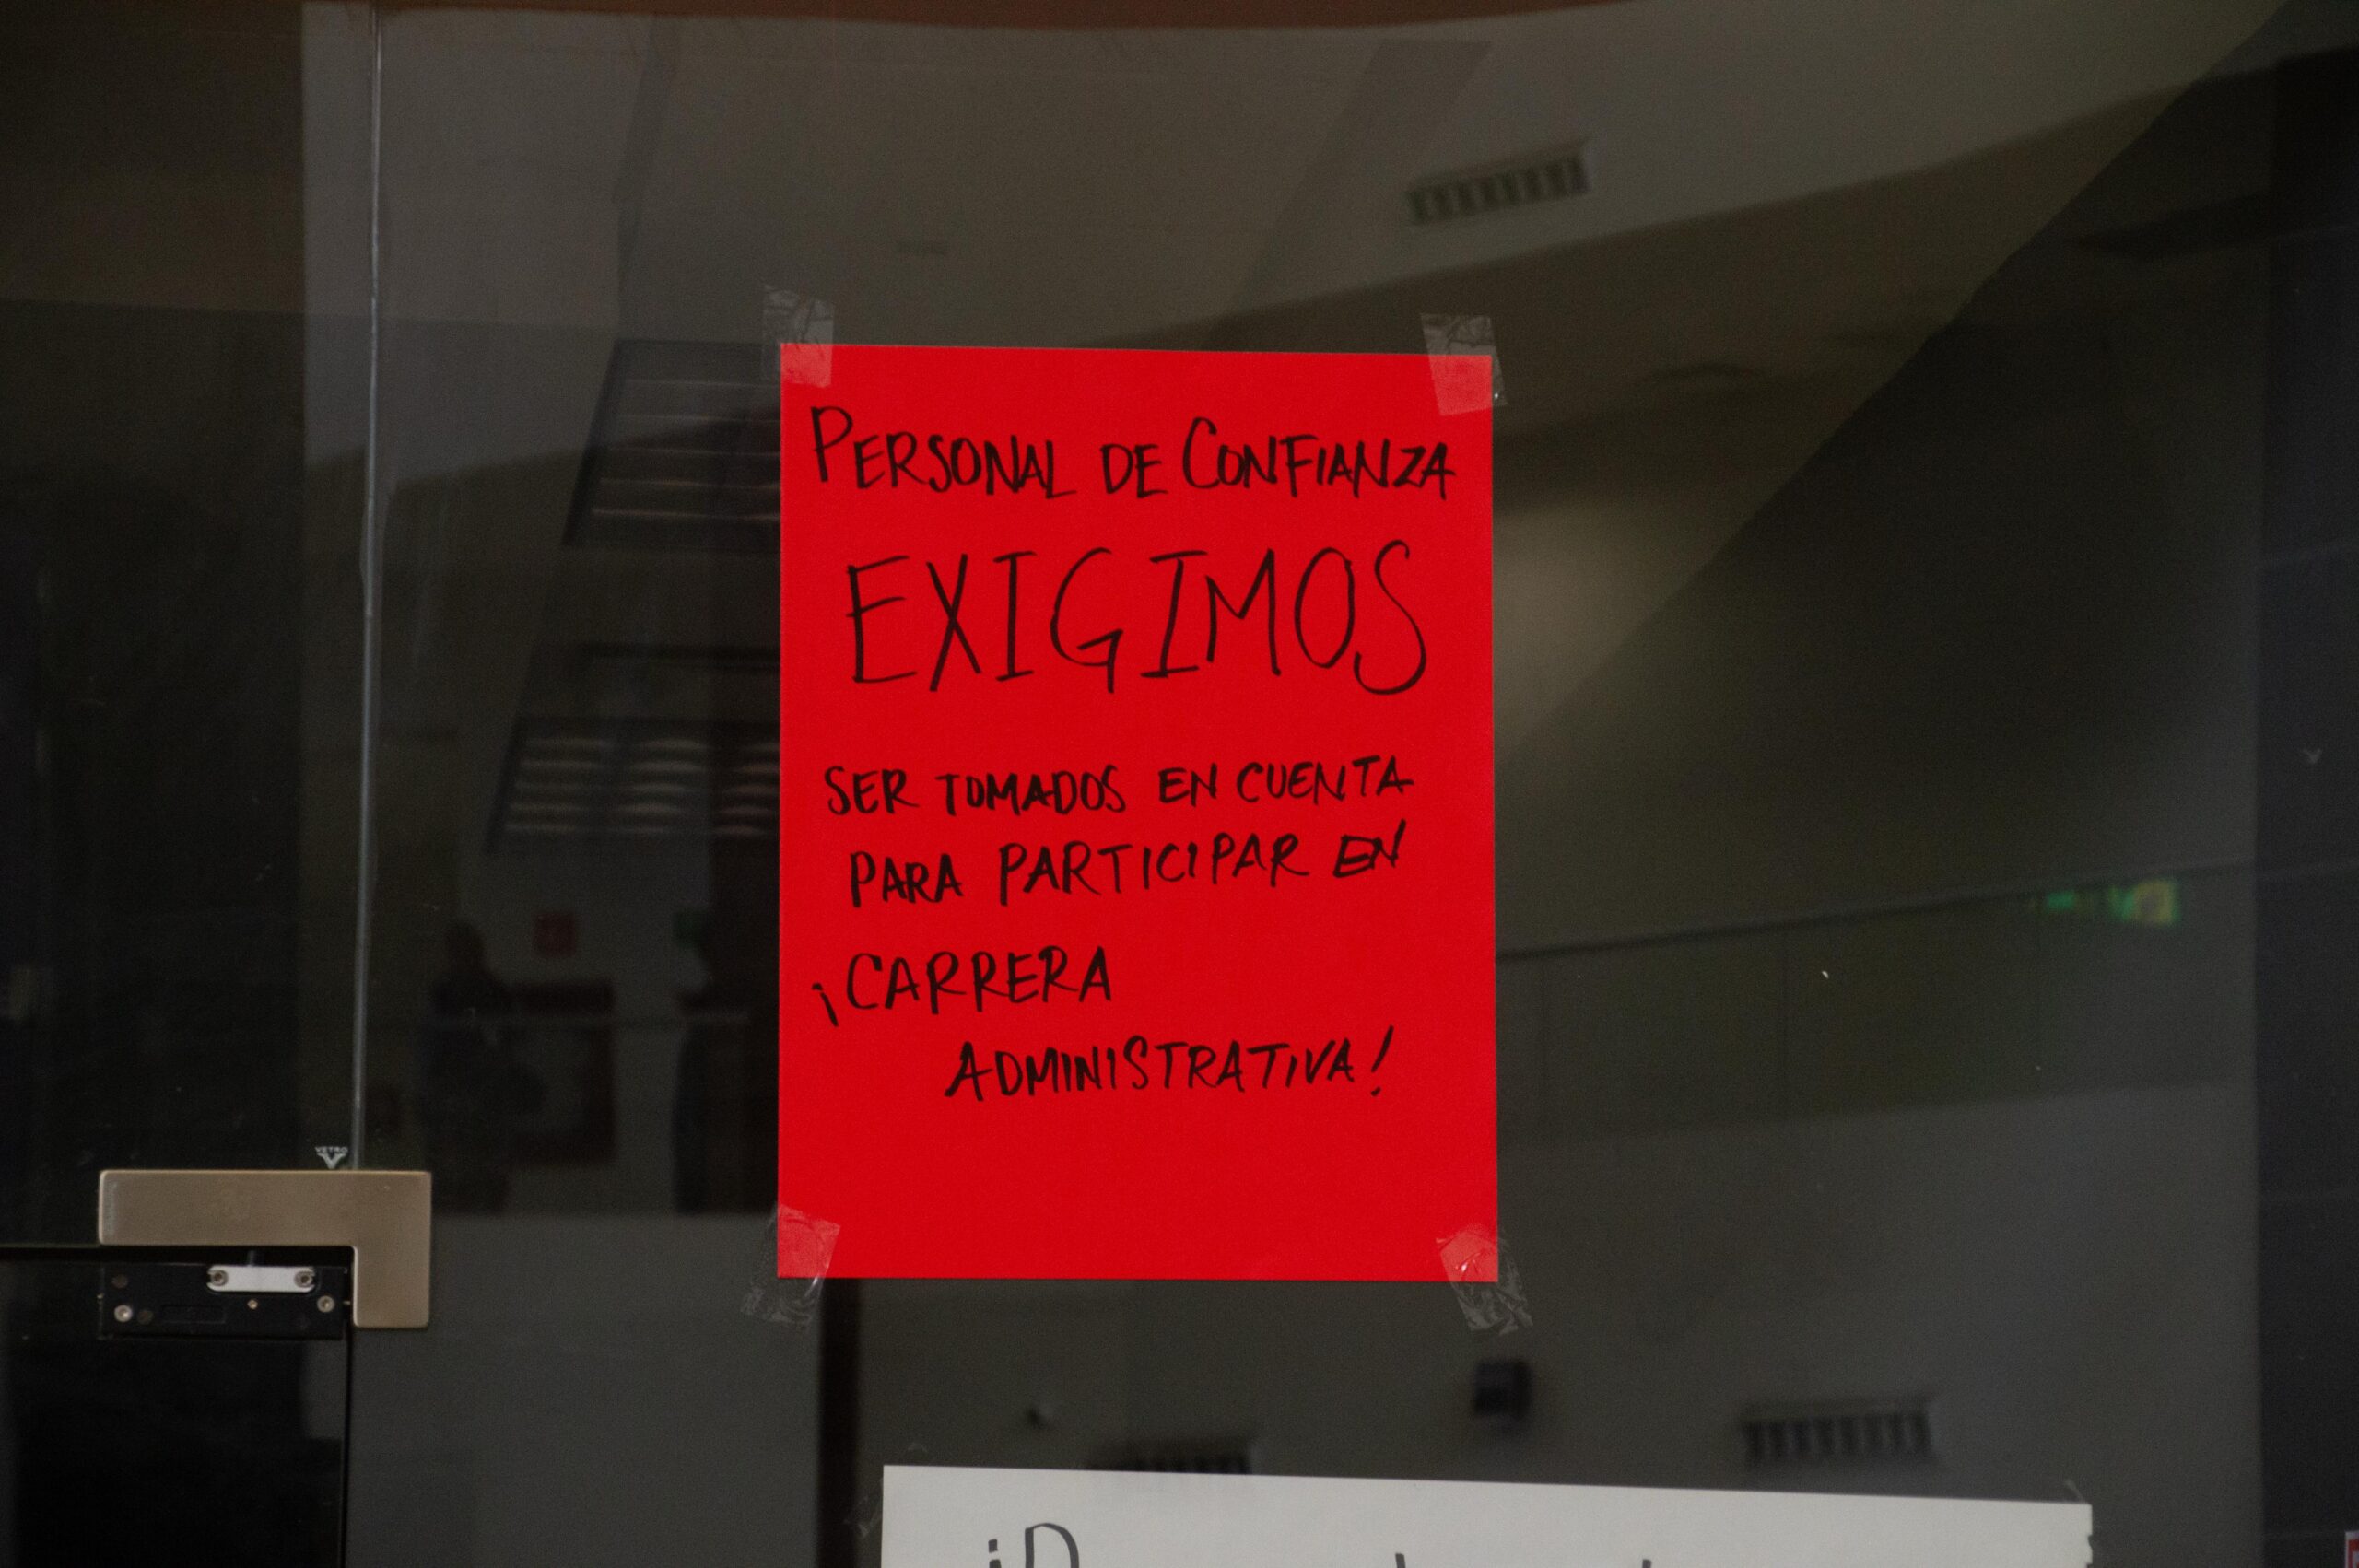 PERSONAL DE CONFIANZA
EXIGIMOS
SER TOMADOS EN CUENTA
PARA PARTICIPAR EN
¡CARRERA
ADMINISTRATIVA!
VETRO